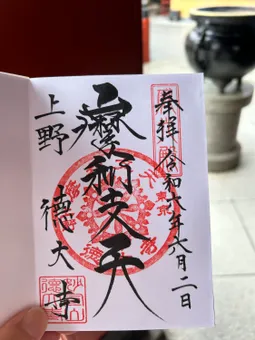 奉拝 令和六年六月二日
摩利支天
上野 徳大寺
東京